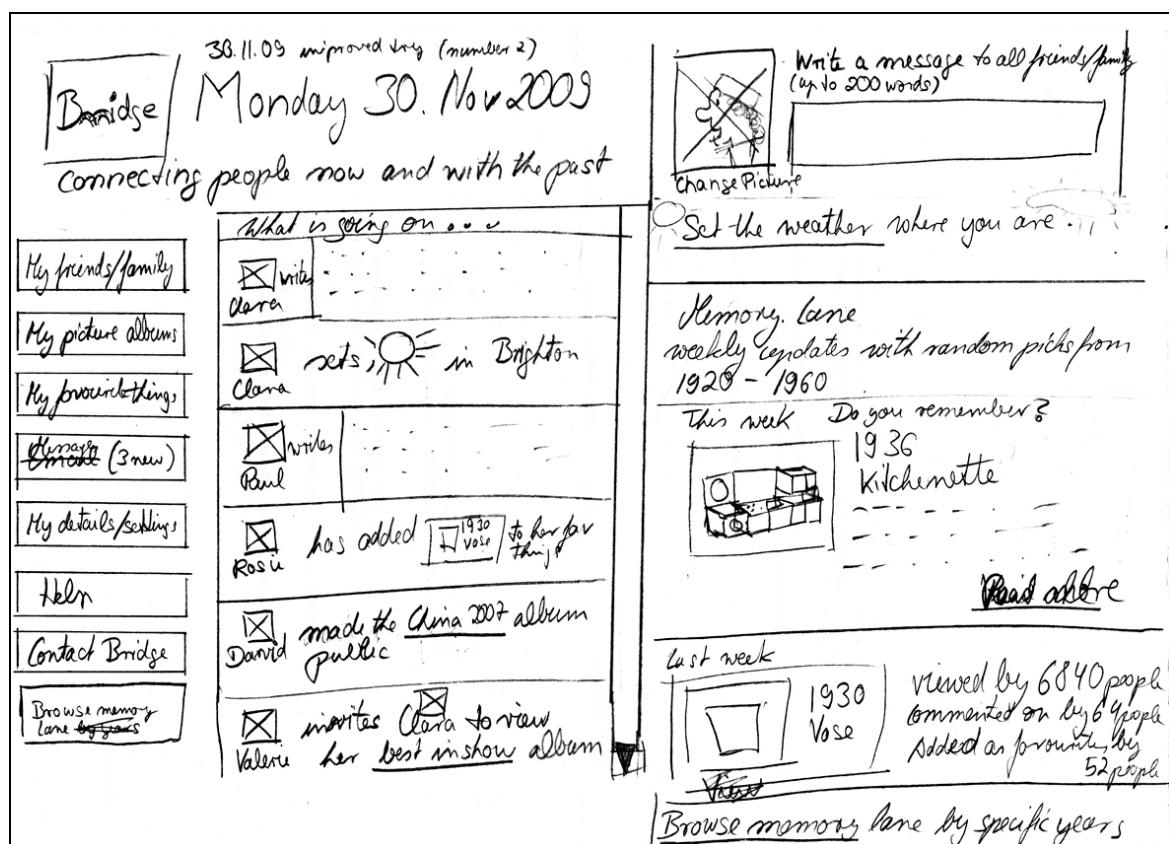 30.11.09 improved try (number 2)
Bridge
Monday 30. Nov 2009
connecting people now and with the past
My friends/family
My picture albums
My favourite things
Message (3 new)
My details/settings
Help
Contact Bridge
Browse memory
lane by years
What is going on...
writes
Clara
sets in Brighton
Clara
writes
Paul
has added 1930 Vase to her fav
things
Rosie
David made the China 2007 album
public
invites Clara to view
Valerie her best in show album
Write a message to all friends/family
(up to 200 words)
Change Picture
Set the weather where you are.
Memory Lane
weekly updates with random picks from
1920 - 1960
This week Do you remember?
1936
Kitchenette
Last week
1930
Vase
viewed by 6840 people
commented on by 64 people
Added as favourites by
52 people
View
Browse memory lane by specific years